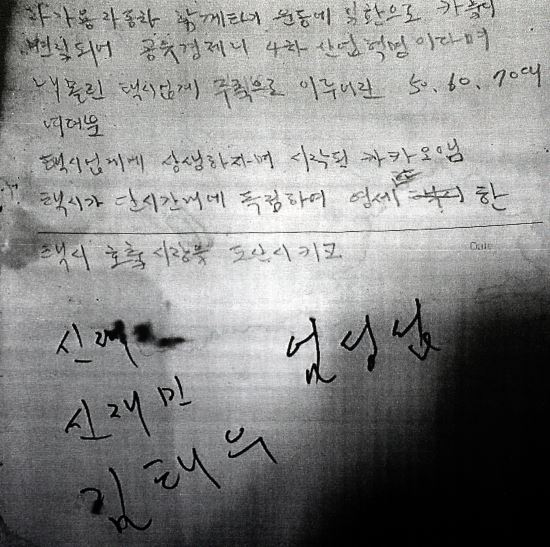 자가용 자동차 함께타기 운동에 일환으로 카풀이
변질되어 공유경제니 4차 산업혁명 이라며
내몰린 택시업계 주축으로 이루어진 50. 60. 70대
택시업계에 상생하자며 시작된 카카오앱
택시가 단시간내에 독점하여 영세 한
택시 호출 시장을 도산시키고
Date
신재
님
신재민
김태우